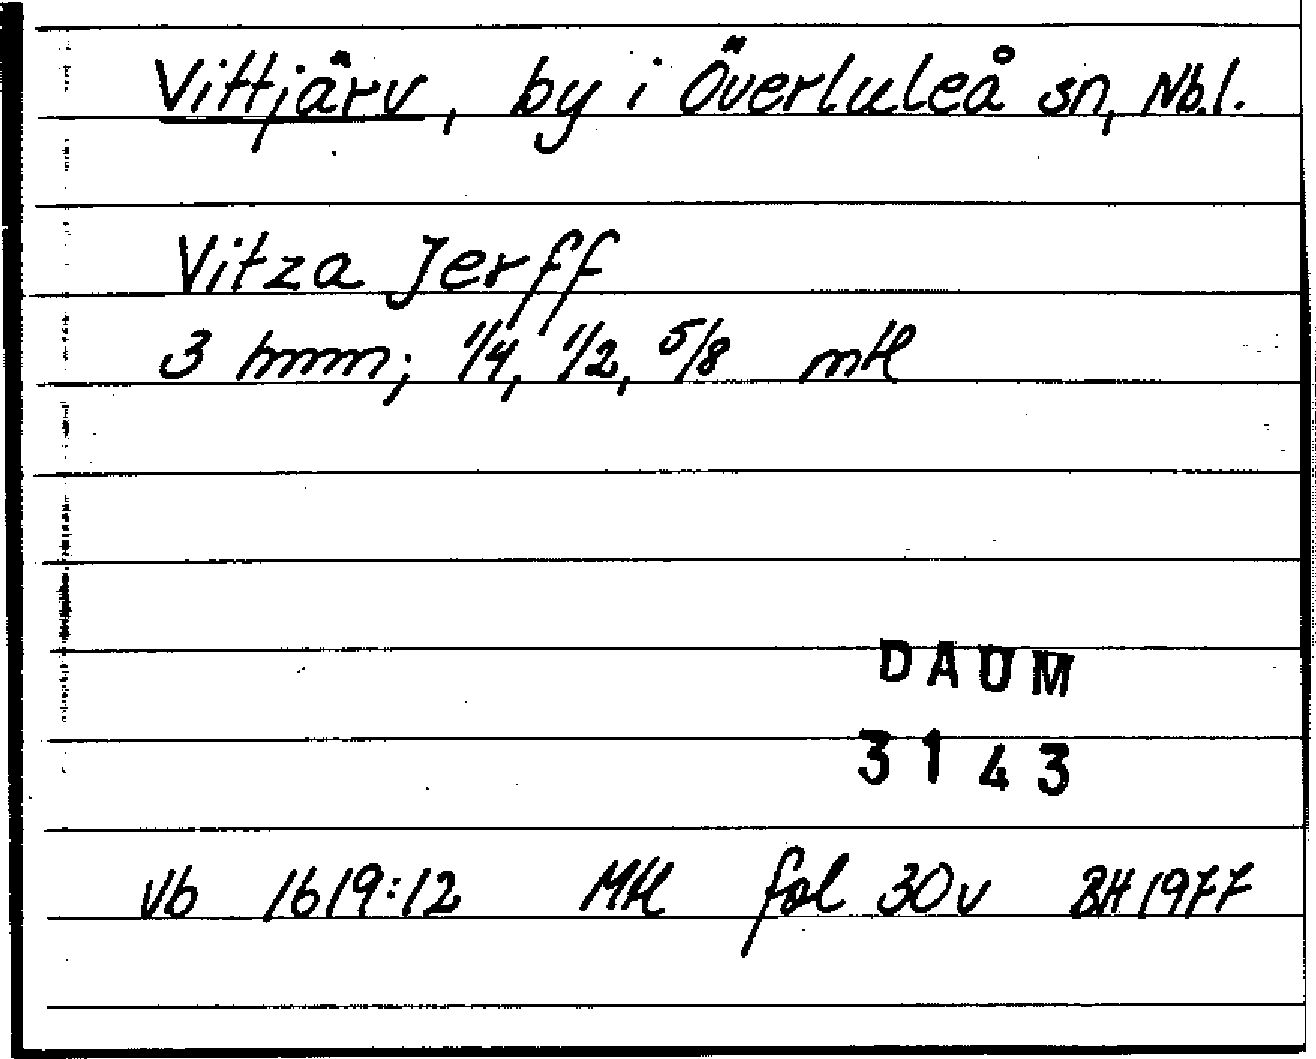 Vittjärv, by i Överluleå sn, Nb.l.
Vitza Jerff
3 hmm; 1/4, 1/2, 5/8 mtl
DAUM
3143
Vb 1619:12 Mtl fol 30v BH 1977